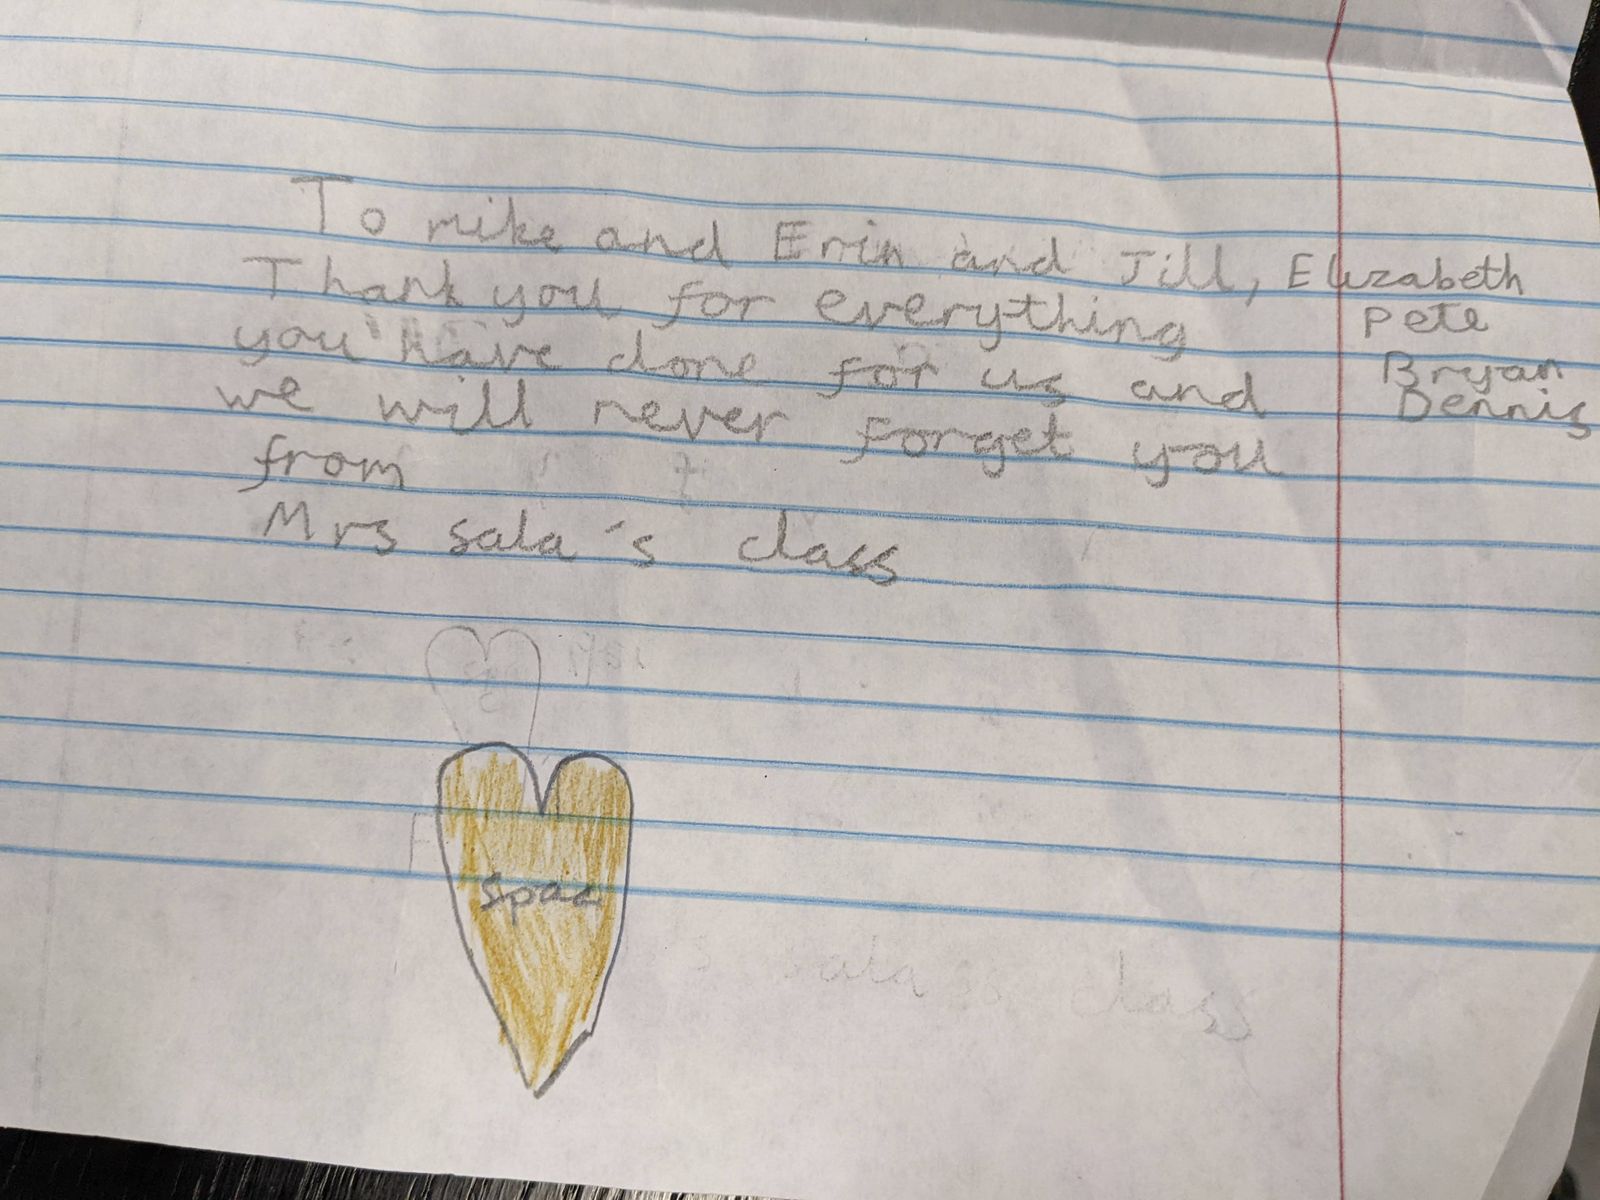 To mike and Erin and Jill, Elizabeth
Pete
Bryan
Dennis
Thank you for everything
you have done for us and
we will never forget you
from
Mrs sala's class
spac
sala class